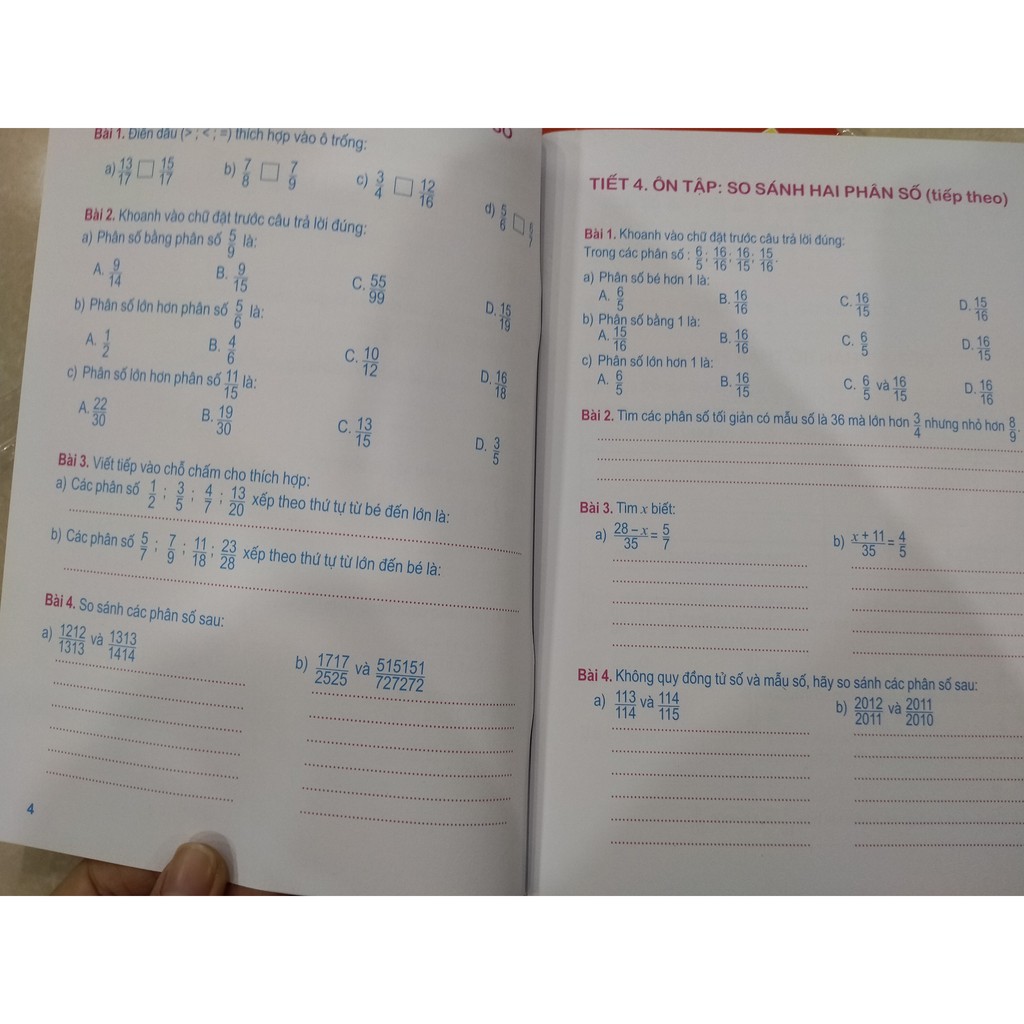 Bài 1. Điền dấu (> ; < ; =) thích hợp vào ô trống:
a) 13/17 □ 15/17 b) 7/8 □ 7/9 c) 3/4 □ 12/16 d) 5/6 □ 6/7
Bài 2. Khoanh vào chữ đặt trước câu trả lời đúng:
a) Phân số bằng phân số 5/9 là:
A. 9/14 B. 9/15 C. 55/99 D. 15/19
b) Phân số lớn hơn phân số 5/6 là:
A. 1/2 B. 4/6 C. 10/12 D. 16/18
c) Phân số lớn hơn phân số 11/15 là:
A. 22/30 B. 19/30 C. 13/15 D. 3/5
Bài 3. Viết tiếp vào chỗ chấm cho thích hợp:
a) Các phân số 1/2 ; 3/5 ; 4/7 ; 13/20 xếp theo thứ tự từ bé đến lớn là:
b) Các phân số 5/7 ; 7/9 ; 11/18 ; 23/28 xếp theo thứ tự từ lớn đến bé là:
Bài 4. So sánh các phân số sau:
a) 1212/1313 và 1313/1414 b) 1717/2525 và 515151/727272
4
TIẾT 4. ÔN TẬP: SO SÁNH HAI PHÂN SỐ (tiếp theo)
Bài 1. Khoanh vào chữ đặt trước câu trả lời đúng:
Trong các phân số : 6/5; 16/16; 16/15; 15/16.
a) Phân số bé hơn 1 là:
A. 6/5 B. 16/16 C. 16/15 D. 15/16
b) Phân số bằng 1 là:
A. 15/16 B. 16/16 C. 6/5 D. 16/15
c) Phân số lớn hơn 1 là:
A. 6/5 B. 16/15 C. 6/5 và 16/15 D. 16/16
Bài 2. Tìm các phân số tối giản có mẫu số là 36 mà lớn hơn 3/4 nhưng nhỏ hơn 8/9.
Bài 3. Tìm x biết:
a) 28 – x/35 = 5/7 b) x + 11/35 = 4/5
Bài 4. Không quy đồng tử số và mẫu số, hãy so sánh các phân số sau:
a) 113/114 và 114/115 b) 2012/2011 và 2011/2010